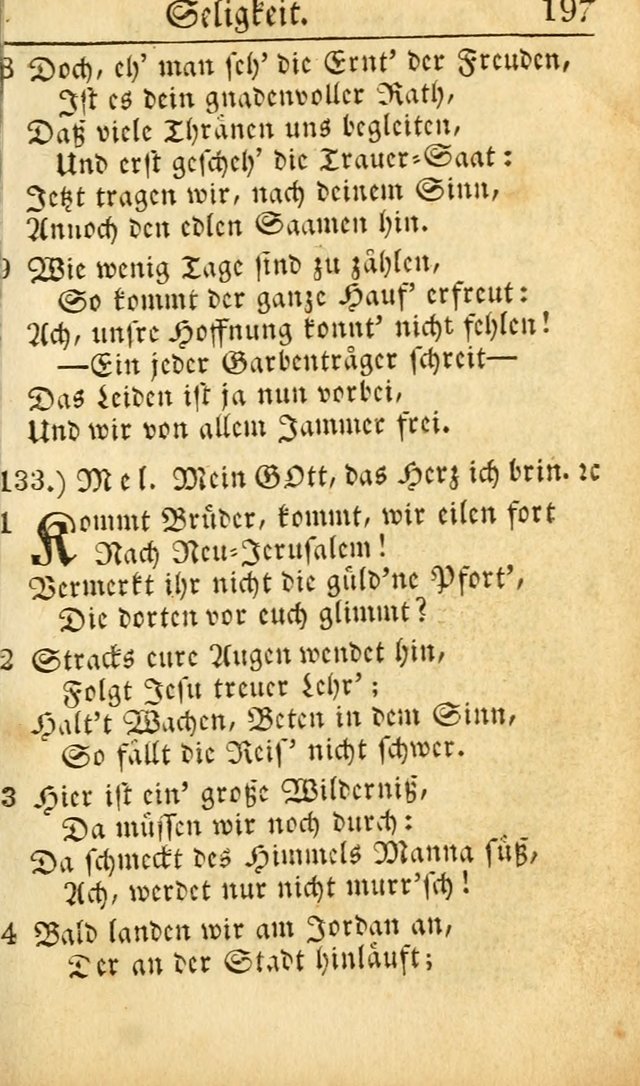 Seligkeit. 197
8 Doch, eh' man seh' die Ernt' der Freuden,
Ist es dein gnadenvoller Rath,
Daß viele Thränen uns begleiten,
Und erst gescheh' die Trauer-Saat:
Jetzt tragen wir, nach deinem Sinn,
Annoch den edlen Saamen hin.
9 Wie wenig Tage sind zu zählen,
So kommt der ganze Hauf' erfreut:
Ach, unsre Hoffnung konnt' nicht fehlen!
—Ein jeder Garbenträger schreit—
Das Leiden ist ja nun vorbei,
Und wir von allem Jammer frei.
133.) Mel. Mein GOtt, das Herz ich brin. ꝛc
1 Kommt Brüder, kommt, wir eilen fort
Nach Neu-Jerusalem!
Vermerkt ihr nicht die güld'ne Pfort',
Die dorten vor euch glimmt?
2 Stracks eure Augen wendet hin,
Folgt Jesu treuer Lehr';
Halt't Wachen, Beten in dem Sinn,
So fällt die Reis' nicht schwer.
3 Hier ist ein' große Wilderniß,
Da müssen wir noch durch:
Da schmeckt des Himmels Manna süß,
Ach, werdet nur nicht murr'sch!
4 Bald landen wir am Jordan an,
Der an der Stadt hinläuft;